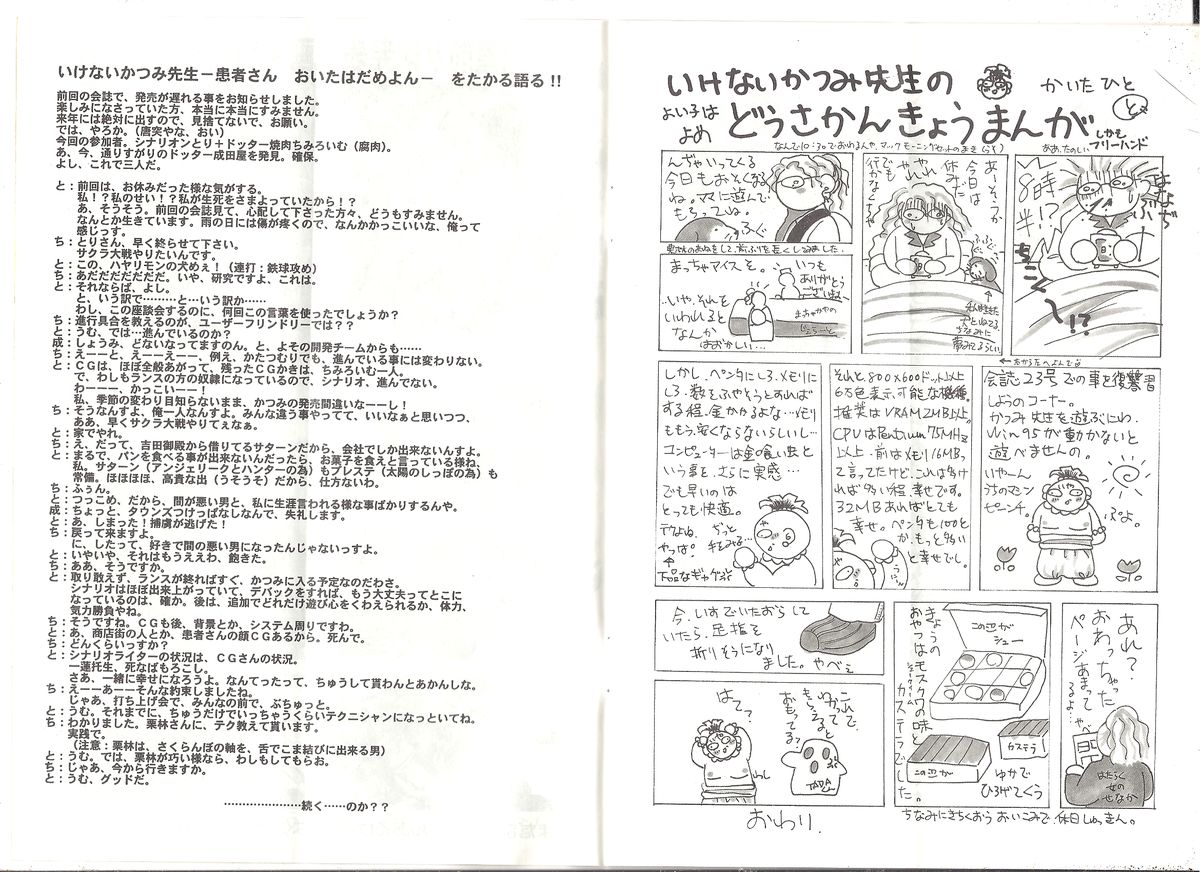 いけないかつみ先生－患者さん　おいたはだめよん－　をたかる語る!!
前回の会誌で、発売が遅れる事をお知らせしました。
楽しみになさっていた方、本当に本当にすみません。
来年には絶対に出すので、見捨てないで、お願い。
では、やろか。（唐突やな、おい）
今回の参加者。シナリオンとり＋ドッター焼肉ちみろいむ（腐肉）。
あ、今、通りすがりのドッター成田屋を発見。確保。
よし、これで三人だ。
と：前回は、お休みだった様な気がする。
私！？私のせい！？私が生死をさまよっていたから！？
あ、そうそう。前回の会誌見て、心配して下さった方々、どうもすみません。
なんとか生きています。雨の日には傷が疼くので、なんかかっこいいな、俺って
感じっす。
ち：とりさん、早く終らせて下さい。
サクラ大戦やりたいんです。
と：この、ハヤリモンの犬めぇ！（連打：鉄球攻め）
ち：あだだだだだだ。いや、研究ですよ、これは。
と：それならば、よし。
と、いう訳で………と…いう訳か……
わし、この座談会するのに、何回この言葉を使ったでしょうか？
ち：進行具合を教えるのが、ユーザーフリンドリーでは？？
と：うむ、では…進んでいるのか？
成：しょうみ、どないなってますのん。と、よその開発チームからも……
ち：えーーと、えーーえーー、例え、かたつむりでも、進んでいる事には変わりない。
と：ＣＧは、ほぼ全般あがって、残ったＣＧかきは、ちみろいむ一人。
で、わしもランスの方の奴隷になっているので、シナリオ、進んでない。
わーーー、かっこいーー！
私、季節の変わり目知らないまま、かつみの発売間違いなーーし！
ち：そうなんすよ、俺一人なんすよ。みんな違う事やってて、いいなぁと思いつつ、
ああ、早くサクラ大戦やりてぇなぁ。
と：家でやれ。
ち：え、だって、吉田御殿から借りてるサターンだから、会社でしか出来ないんすよ。
と：まるで、パンを食べる事が出来ないんだったら、お菓子を食えと言っている様ね、
私。サターン（アンジェリークとハンターの為）もプレステ（太陽のしっぽの為）も
常備。ほほほほ、高貴な出（うそうそ）だから、仕方ないわ。
ち：ふぅん。
と：つっこめ、だから、間が悪い男と、私に生涯言われる様な事ばかりするんや。
成：ちょっと、タウンズつけっぱなしなんで、失礼します。
と：あ、しまった！捕虜が逃げた！
ち：戻って来ますよ。
に、したって、好きで間の悪い男になったんじゃないっすよ。
と：いやいや、それはもうええわ、飽きた。
ち：ああ、そうですか。
と：取り敢えず、ランスが終ればすぐ、かつみに入る予定なのだわさ。
シナリオはほぼ出来上がっていて、デバックをすれば、もう大丈夫ってとこに
なっているのは、確か。後は、追加でどれだけ遊び心をくわえられるか、体力、
気力勝負やね。
ち：そうですね。ＣＧも後、背景とか、システム周りですわ。
と：あ、商店街の人とか、患者さんの顔ＣＧあるから。死んで。
ち：どんくらいっすか？
と：シナリオライターの状況は、ＣＧさんの状況。
一蓮托生、死なばもろこし。
さあ、一緒に幸せになろうよ。なんてったって、ちゅうして貰わんとあかんしな。
ち：えーーあーーそんな約束しましたね。
じゃあ、打ち上げ会で、みんなの前で、ぶちゅっと。
と：うむ。それまでに、ちゅうだけでいっちゃうくらいテクニシャンになっといてね。
ち：わかりました。栗林さんに、テク教えて貰います。
実践で。
（注意：栗林は、さくらんぼの軸を、舌でこま結びに出来る男）
と：うむ。では、栗林が巧い様なら、わしもしてもらお。
ち：じゃあ、今から行きますか。
と：うむ、グッドだ。
…………………続く……のか？？
いけないかつみ先生の
かいたひと
と
よい子は
よめ
どうさかんきょうまんが
しかも
フリーハンド
ああ、たのしい
8時
半!?
あーそっか
今日は
休みだ
やれやれ
でも
行かなくては
んぢゃいってくる
今日もおそくなる
ね。ママに遊んで
もらってね。
まっちゃアイスを。
いつも
ありがとう
ございますね
いや、それを
いわれると
なんか
はずかしい…
会誌23号での事を復讐習
しようのコーナー。
かつみ先生を遊ぶにわ、
Win95が動かないと
遊べませんの。
いやーん
うちのマシン
ぷよ。
それと、800×600ドット以上
6万色表示可能な機種。
推奨はVRAM2MB以上。
CPUはPentium 75MHz
以上。前はメモリ16MB。
て言ってたけど、これは多け
れば多い程、幸せです。
32MBあればとても
幸せ。ペンタも100と
か、もっと多い
と幸せでし。
しかし、ペンタにしろ、メモリに
しろ、数をふやそうとすれば
する程、金かかるよな…メモリ
ももう、安くならないらしいし…
コンピューターは金の食い虫と
いう事を、さらに実感…
でも早いのは
とっても快適。
やっぱ
下品なギャグぷぅ
あれ？
おわっちゃった
ページあまって
るよ…
やべ
はたらく
女の
せなか
きょうの
おやつはモスクワの味と
カステラでした。
この辺が
シュー
カステラ
この辺が
ゆかで
ひろげてくう
今、いすでいたおらして
いたら、足指を
折りそうになり
ました。やべぇ
これで、
おわって
もいいと
おもってる？
TADA
はて？
わし
おわり
ちなみにきちくおう おいこみで、休日しゅっきん。